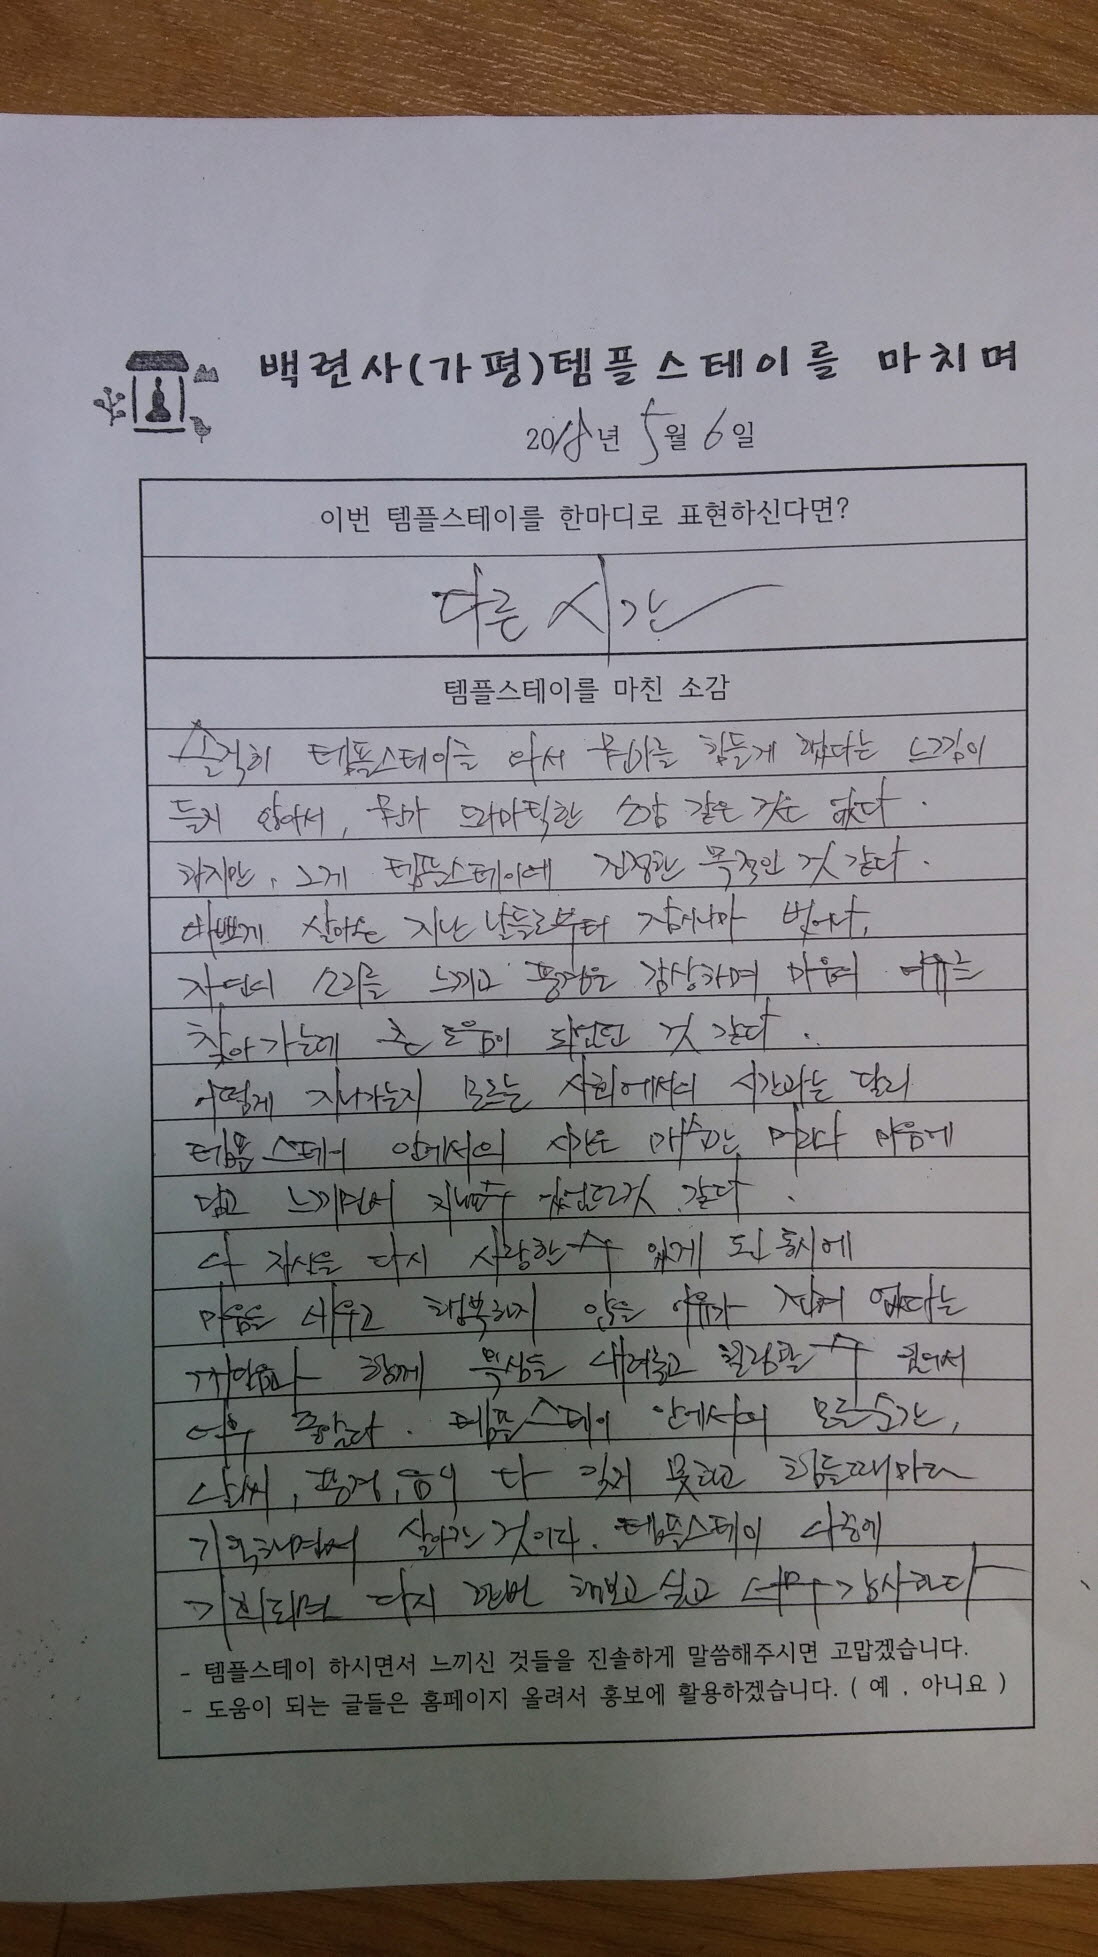 백련사(가평)템플스테이를 마치며
2018년 5월 6일
이번 템플스테이를 한마디로 표현하신다면?
다른 시간
템플스테이를 마친 소감
솔직히 템플스테이를 와서 뭔가를 힘들게 했다는 느낌이
들지 않아서, 뭔가 드라마틱한 소감 같은 것은 없다.
하지만, 그게 템플스테이에 진정한 목적인 것 같다.
바쁘게 살아온 지난 날들로부터 잠시나마 벗어나,
자연의 소리를 느끼고 풍경을 감상하며 마음의 여유를
찾아가는데 큰 도움이 되었던 것 같다.
어떻게 지나가는지 모르는 사회에서의 시간과는 달리
템플스테이 안에서의 시간은 매순간 마음에
담고 느끼면서 지낼 수 있었던것 같다.
나 자신을 다시 사랑할 수 있게 된 동시에
마음을 비우고 행복하지 않을 이유가 전혀 없다는
함께 욕심을 내려놓고 힐링할 수
너무 좋았다. 템플스테이 안에서의 모든 순간,
날씨, 풍경, 음식 다 잊지 못하고 힘들때마다
기억하면서 살아갈 것이다. 템플스테이 나중에
기회되면 다시 한번 해보고 싶고 너무 감사하다
- 템플스테이 하시면서 느끼신 것들을 진솔하게 말씀해주시면 고맙겠습니다.
- 도움이 되는 글들은 홈페이지 올려서 홍보에 활용하겠습니다. ( 예 , 아니요 )